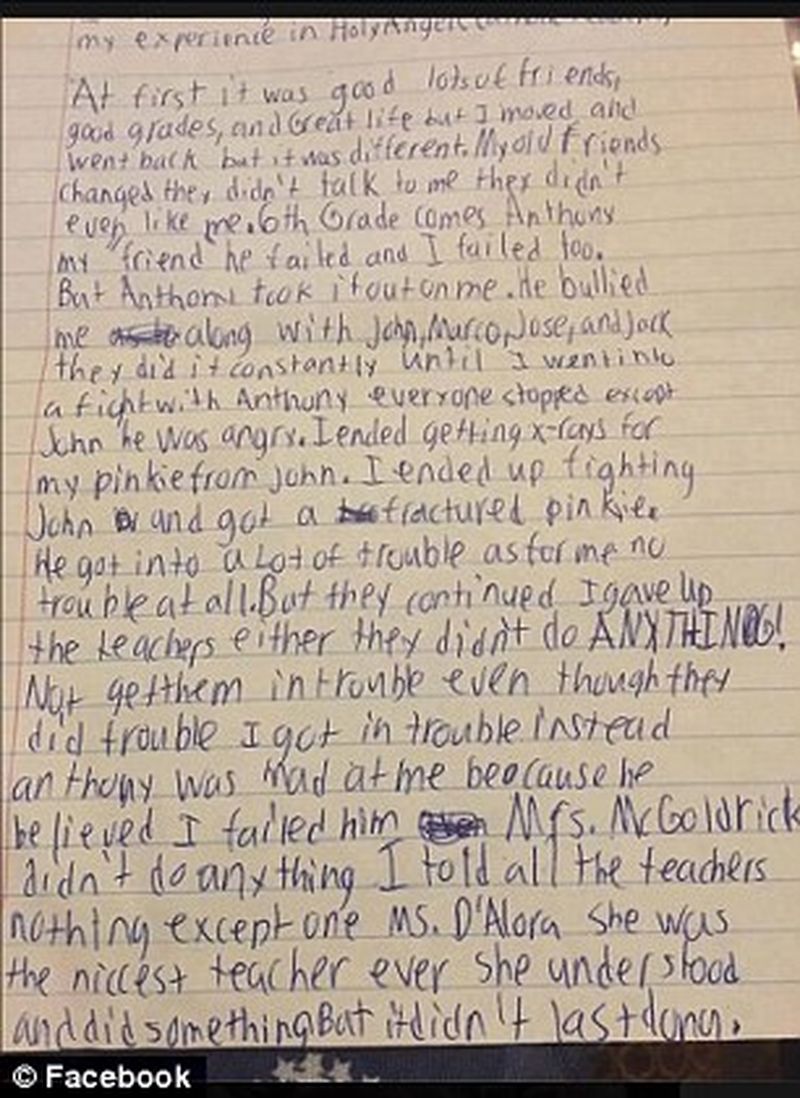 my experience in Holy Angels
At first it was good lots of friends,
good grades, and Great life but I moved and
went back but it was different. My old friends
changed they didn't talk to me they didn't
even like me. 6th Grade comes Anthony
my "friend he failed and I failed too.
But Anthony took it out on me. He bullied
me along with John, Marco, Jose, and Jack
they did it constantly until I went into
a fight with Anthony everyone stopped except
John he was angry. I ended getting x-rays for
my pinkie from John. I ended up fighting
John and got a fractured pinkie.
He got into a Lot of trouble as for me no
trouble at all. But they continued I gave up
the teachers either they didn't do ANYTHING!
Not get them in trouble even though they
did trouble I got in trouble instead
anthony was mad at me beocause he
believed I failed him Mrs. McGoldrick
didn't do anything I told all the teachers
nothing except one MS. D'Alora she was
the niccest teacher ever she understood
and did something But it didn't last long.
© Facebook